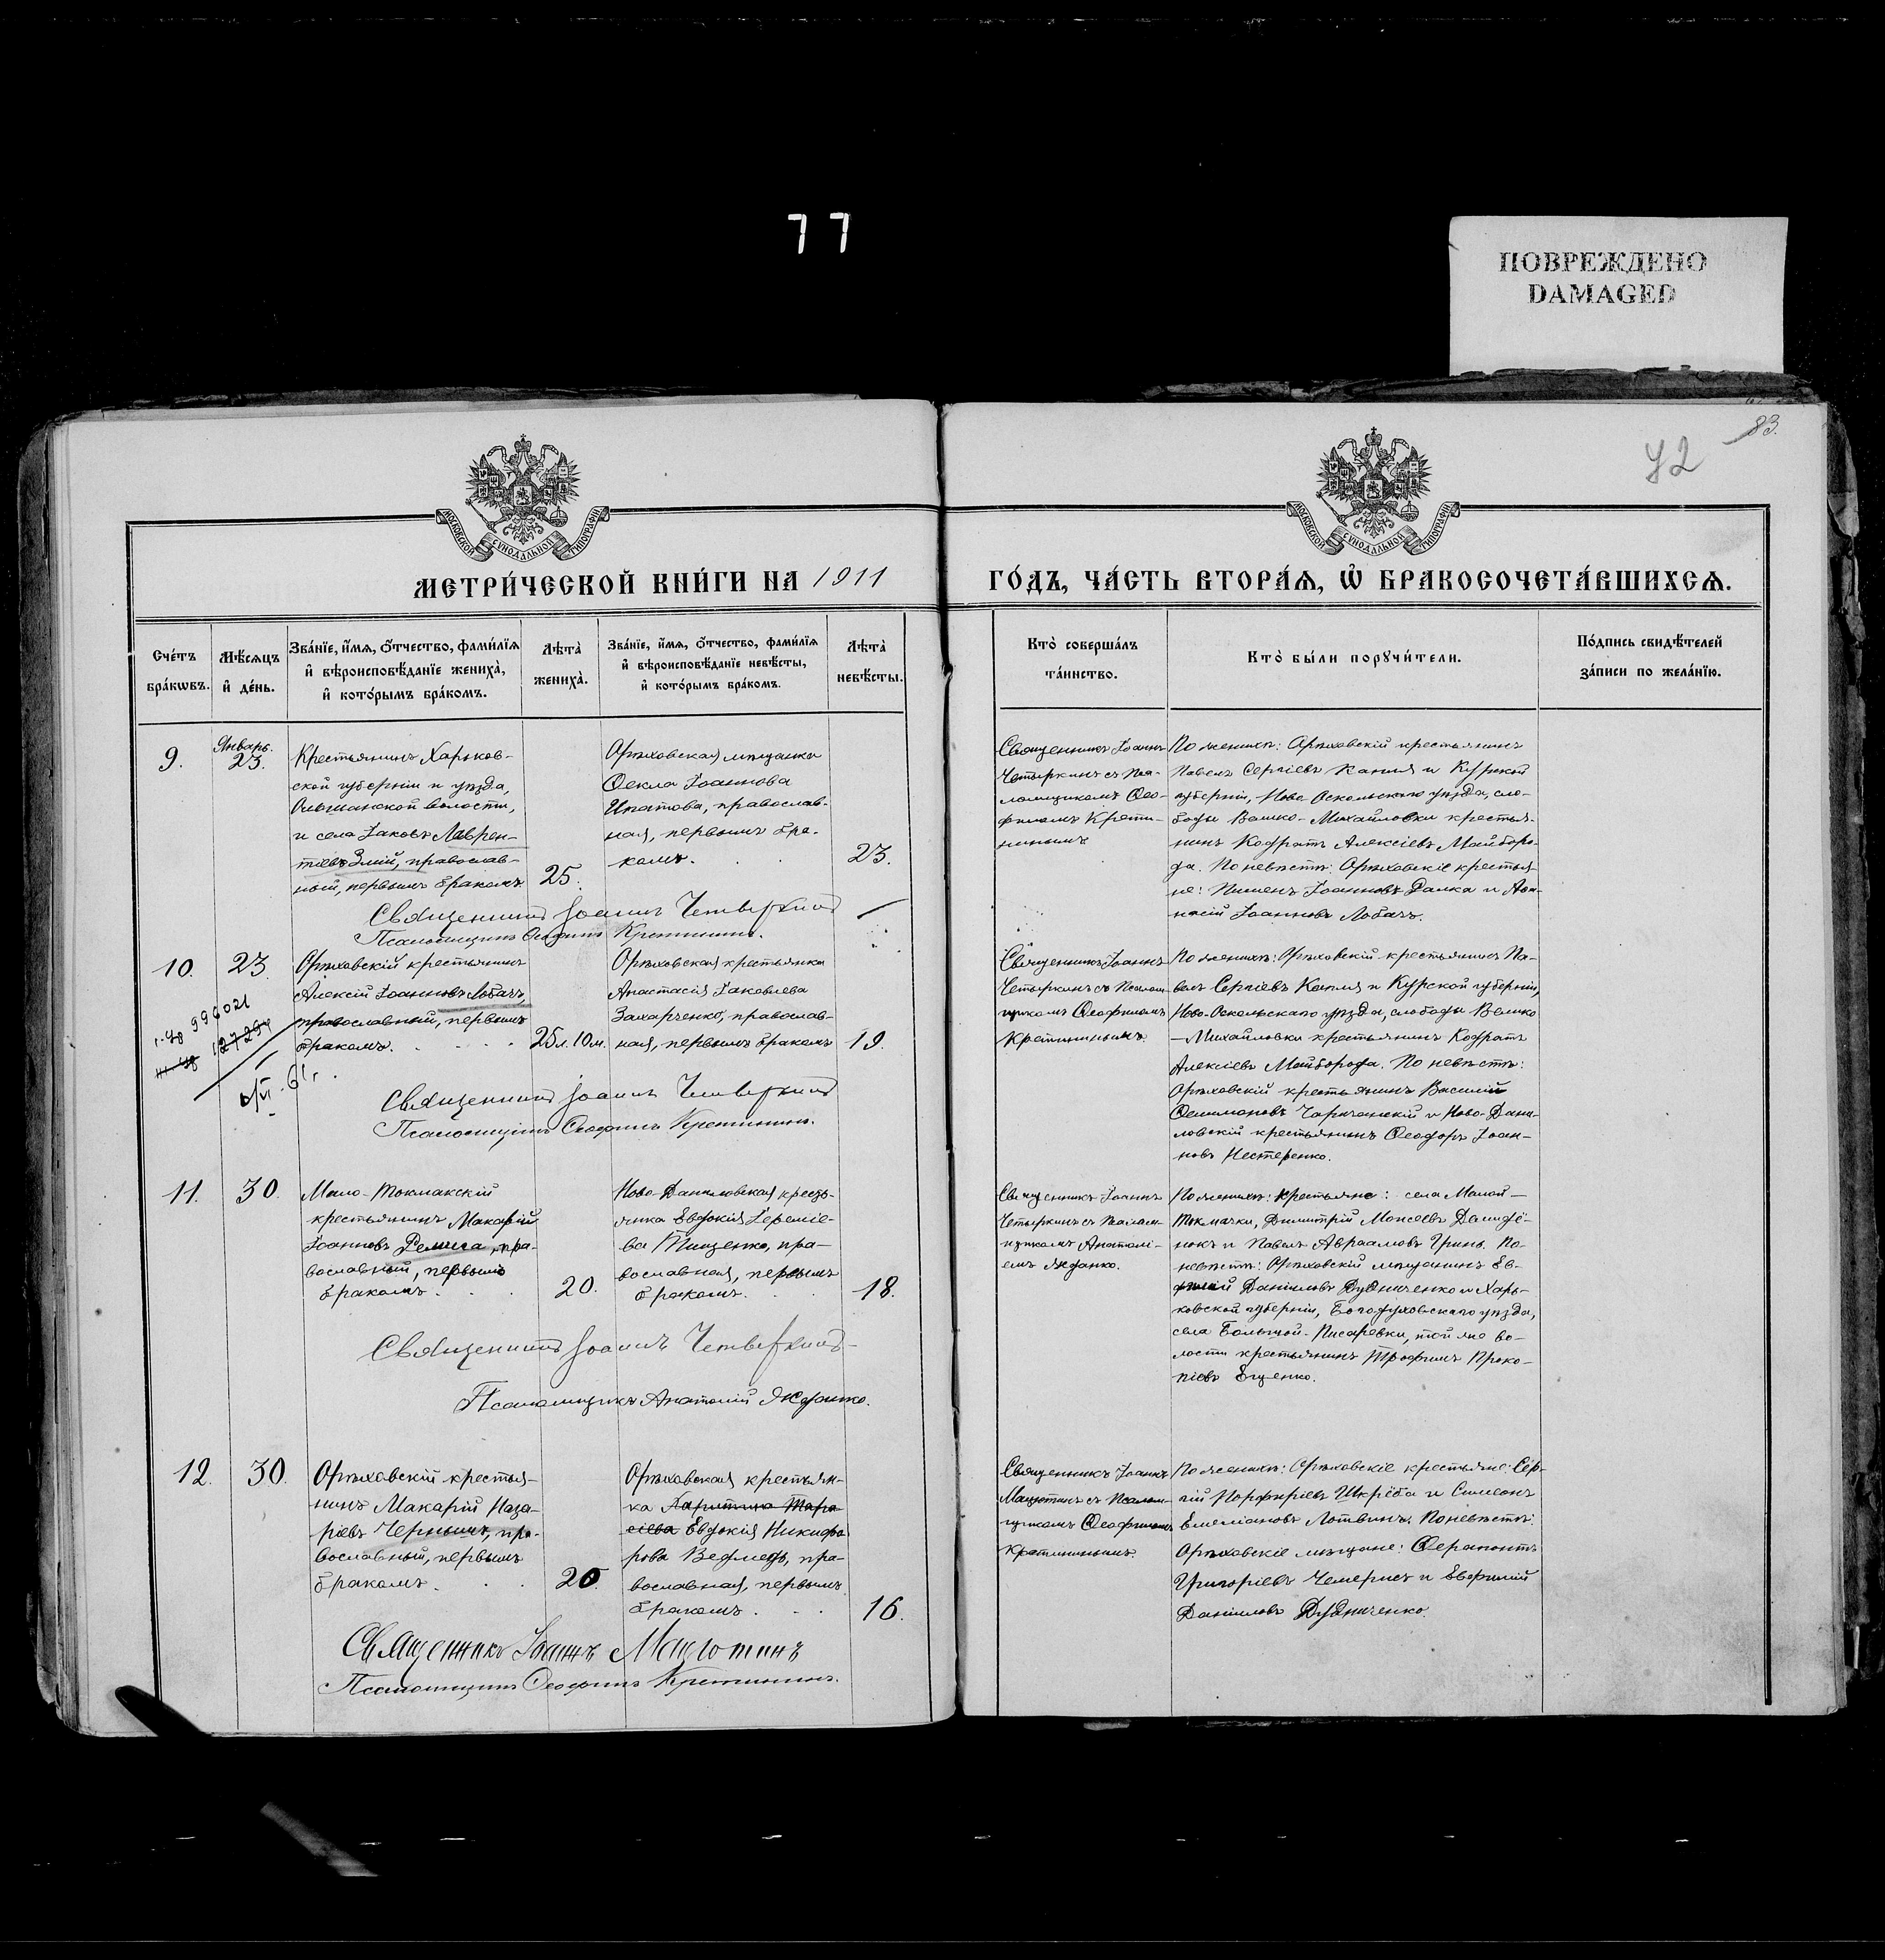 77
ПОВРЕЖДЕНО
DAMAGED
83.
42
МОСКОВСКОЙ СѴНОДАЛЬНОЙ ТИПОГРАФІИ
МОСКОВСКОЙ СѴНОДАЛЬНОЙ ТИПОГРАФІИ
МЕТРИ́ЧЕСКОЙ КНИ́ГИ НА 1911
ГО́ДЪ, ЧА́СТЬ ВТОРА́Ѧ, Ѽ БРАКОСОЧЕТА́ВШИХСѦ.
Сче́тъ
бра́кѡвъ.
Мѣ́сяцъ
и҆ де́нь.
Зва́нїе, и҆́мѧ, ѻ҆́тчество, фами́лїѧ
и҆ вѣроисповѣ́данїе жениха̀,
и҆ кото́рымъ бра́комъ.
Лѣта̀
жениха̀.
Зва́нїе, и҆́мѧ, ѻ҆́тчество, фами́лїѧ
и҆ вѣроисповѣ́данїе невѣ́сты,
и҆ кото́рымъ бра́комъ.
Лѣта̀
невѣ́сты.
Кто̀ соверша́лъ
та́инство.
Кто̀ бы́ли порꙋчи́тели.
По́дпись свидѣ́телей
за́писи по жела́нїю.
9.
Январь.
23.
Крестьянинъ Харьков-
ской губерніи и уѣзда,
Ольшанской волости,
и села Іаковъ Лаврен-
тіевъ Змій, православ-
ный, первымъ бракомъ
25.
Орѣховская мѣщанка
Ѳекла Іоаннова
Ипатова, православ-
ная, первымъ бра-
комъ.
23.
Священникъ Іоаннъ
Четыркинъ съ Пса-
ломщикомъ Ѳео-
филомъ Крети-
нинымъ
По женихѣ: Орѣховскій крестьянинъ
Павелъ Сергіевъ Капля и Курской
губерніи, Ново-Оскольскаго уѣзда, сло-
боды Велико-Михайловки крестья-
нинъ Кодратъ Алексіевъ Майборо-
да. По невѣстѣ: Орѣховскіе крестья-
не: Пименъ Іоанновъ Галка и Аѳа-
насій Іоанновъ Лобачъ.
Священникъ Іоаннъ Четыркинъ
Псаломщикъ Ѳеофилъ Кретининъ.
10.
23.
Орѣховскій крестьянинъ
Алексій Іоанновъ Лобачъ,
православный, первымъ
бракомъ.
25 л. 10 м.
Орѣховская крестьянка
Анастасія Іаковлева
Захарченко, православ-
ная, первымъ бракомъ
19.
996021
12725
6/VI. 61 г.
Священникъ Іоаннъ
Четыркинъ съ Псалом-
щикомъ Ѳеофиломъ
Кретининымъ.
По женихѣ: Орѣховскій крестьянинъ Па-
велъ Сергіевъ Капля и Курской губерніи,
Ново-Оскольскаго уѣзда, слободы Велико
-Михайловки крестьянинъ Кодратъ
Алексіевъ Майборода. По невѣстѣ:
Орѣховскій крестьянинъ Василій
Филимоновъ Чаричанскій и Ново-Дани-
ловскій крестьянинъ Ѳеодоръ Іоан-
новъ Нестеренко.
Священникъ Іоаннъ Четыркинъ
Псаломщикъ Ѳеофилъ Кретининъ.
11.
30.
Мало-Токмакскій
крестьянинъ Макарій
Іоанновъ Ремига, пра-
вославный, первымъ
бракомъ.
20.
Ново-Даниловская кресть-
янка Евдокія Іереміе-
ва Тищенко, пра-
вославная, первымъ
бракомъ.
18.
Священникъ Іоаннъ
Четыркинъ съ Псалом-
щикомъ Анатолі-
емъ Жданко.
По женихѣ: крестьяне: села Малой-
Токмачки, Димитрій Моисеевъ Далифё-
нокъ и Павелъ Авраамовъ Гринь. По
невѣстѣ: Орѣховскій мѣщанинъ Ев-
фимій Даніиловъ Дудниченко и Харь-
ковской губерніи, Богодуховскаго уѣзда,
села Большой-Писаревки, той же во-
лости крестьянинъ Трофимъ Проко-
піевъ Ещенко.
Священникъ Іоаннъ Четыркинъ
Псаломщикъ Анатолій Жданко.
12.
30.
Орѣховскій крестья-
нинъ Макарій Наза-
ріевъ Чернышъ, пра-
вославный, первымъ
бракомъ.
20.
Орѣховская крестьян-
ка Харитина Тара
сіева Евдокія Никифо
рова Ведмедь, пра-
вославная, первымъ
бракомъ.
16.
Священникъ Іоаннъ
Мацютинъ съ Псалом-
щикомъ Ѳеофиломъ
Кретининымъ.
По женихѣ: Орѣховскіе крестьяне: Сер-
гій Порфиріевъ Шкрёба и Симеонъ
Емеліановъ Лотвинъ. По невѣстѣ:
Орѣховскіе мѣщане: Ѳерапонтъ
Григоріевъ Чемерисъ и Евфимій
Даніиловъ Дудниченко.
Священникъ Іоаннъ Мацютинъ
Псаломщикъ Ѳеофилъ Кретининъ.